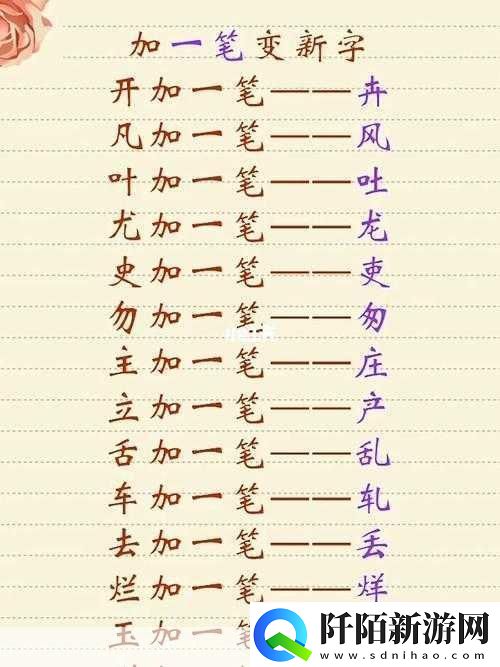 加一笔变新字
开加一笔——卉
凡加一笔——风
叶加一笔——吐
尤加一笔——龙
史加一笔——吏
勿加一笔——匆
主加一笔——庄
立加一笔——产
舌加一笔——乱
车加一笔——轧
去加一笔——丢
烂加一笔——烊
玉加一笔
阡陌新游网
www.sdnihao.com